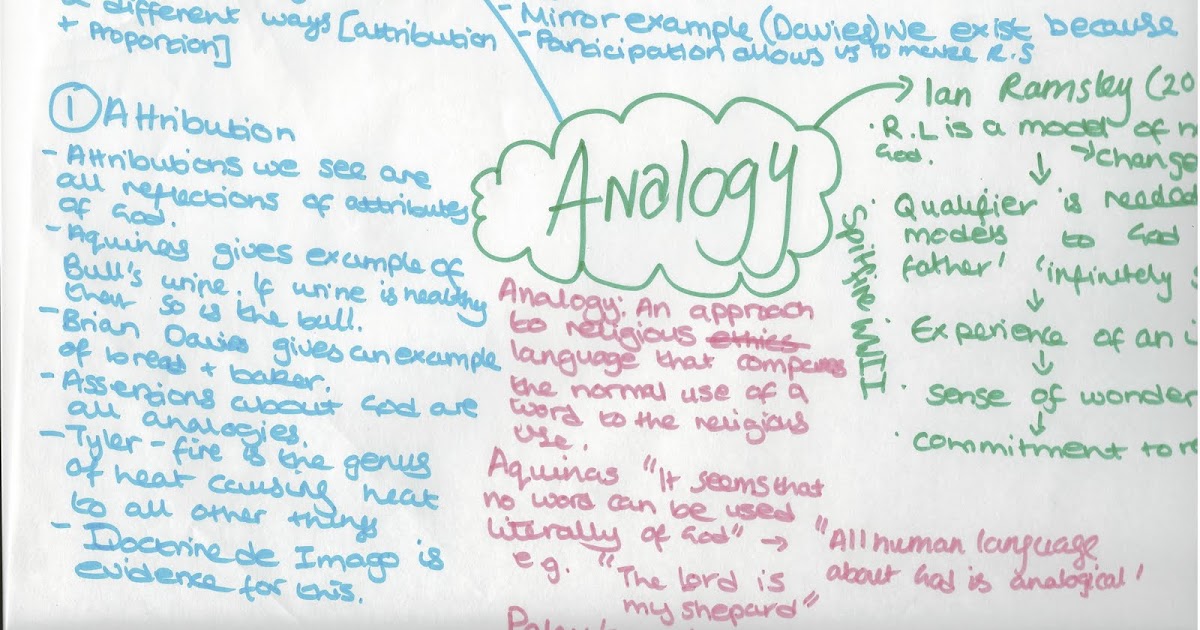 different ways [attribution
+ Proportion]
- Mirror example (Davies) we exist because
- Participation allows us to mirror R.S
① Attribution
- Attributions we see are
all reflections of attributes
of God.
- Aquinas gives example of
Bull's urine. If urine is healthy
then so is the bull.
- Brian Davies gives an example
of bread + baker.
- Assertions about God are
all analogies.
- Tyler - fire is the genus
of heat causing heat
to all other things
- Doctrine de Imago is
evidence for this.
Analogy
Analogy: An approach
to religious ethics
language that compares
the normal use of a
word to the religious
use.
Aquinas "It seems that
no word can be used
literally of God" → "All human language
about God is analogical'
e.g. "The lord is
my shepard"
Ian Ramsley (20
· R.L is a model of
God. → change
↓
· Qualifier is needed
models to God
father' 'infinitely
↓
Experience of an
↓
· sense of wonder
↓
· commitment to
Spitfire WWII